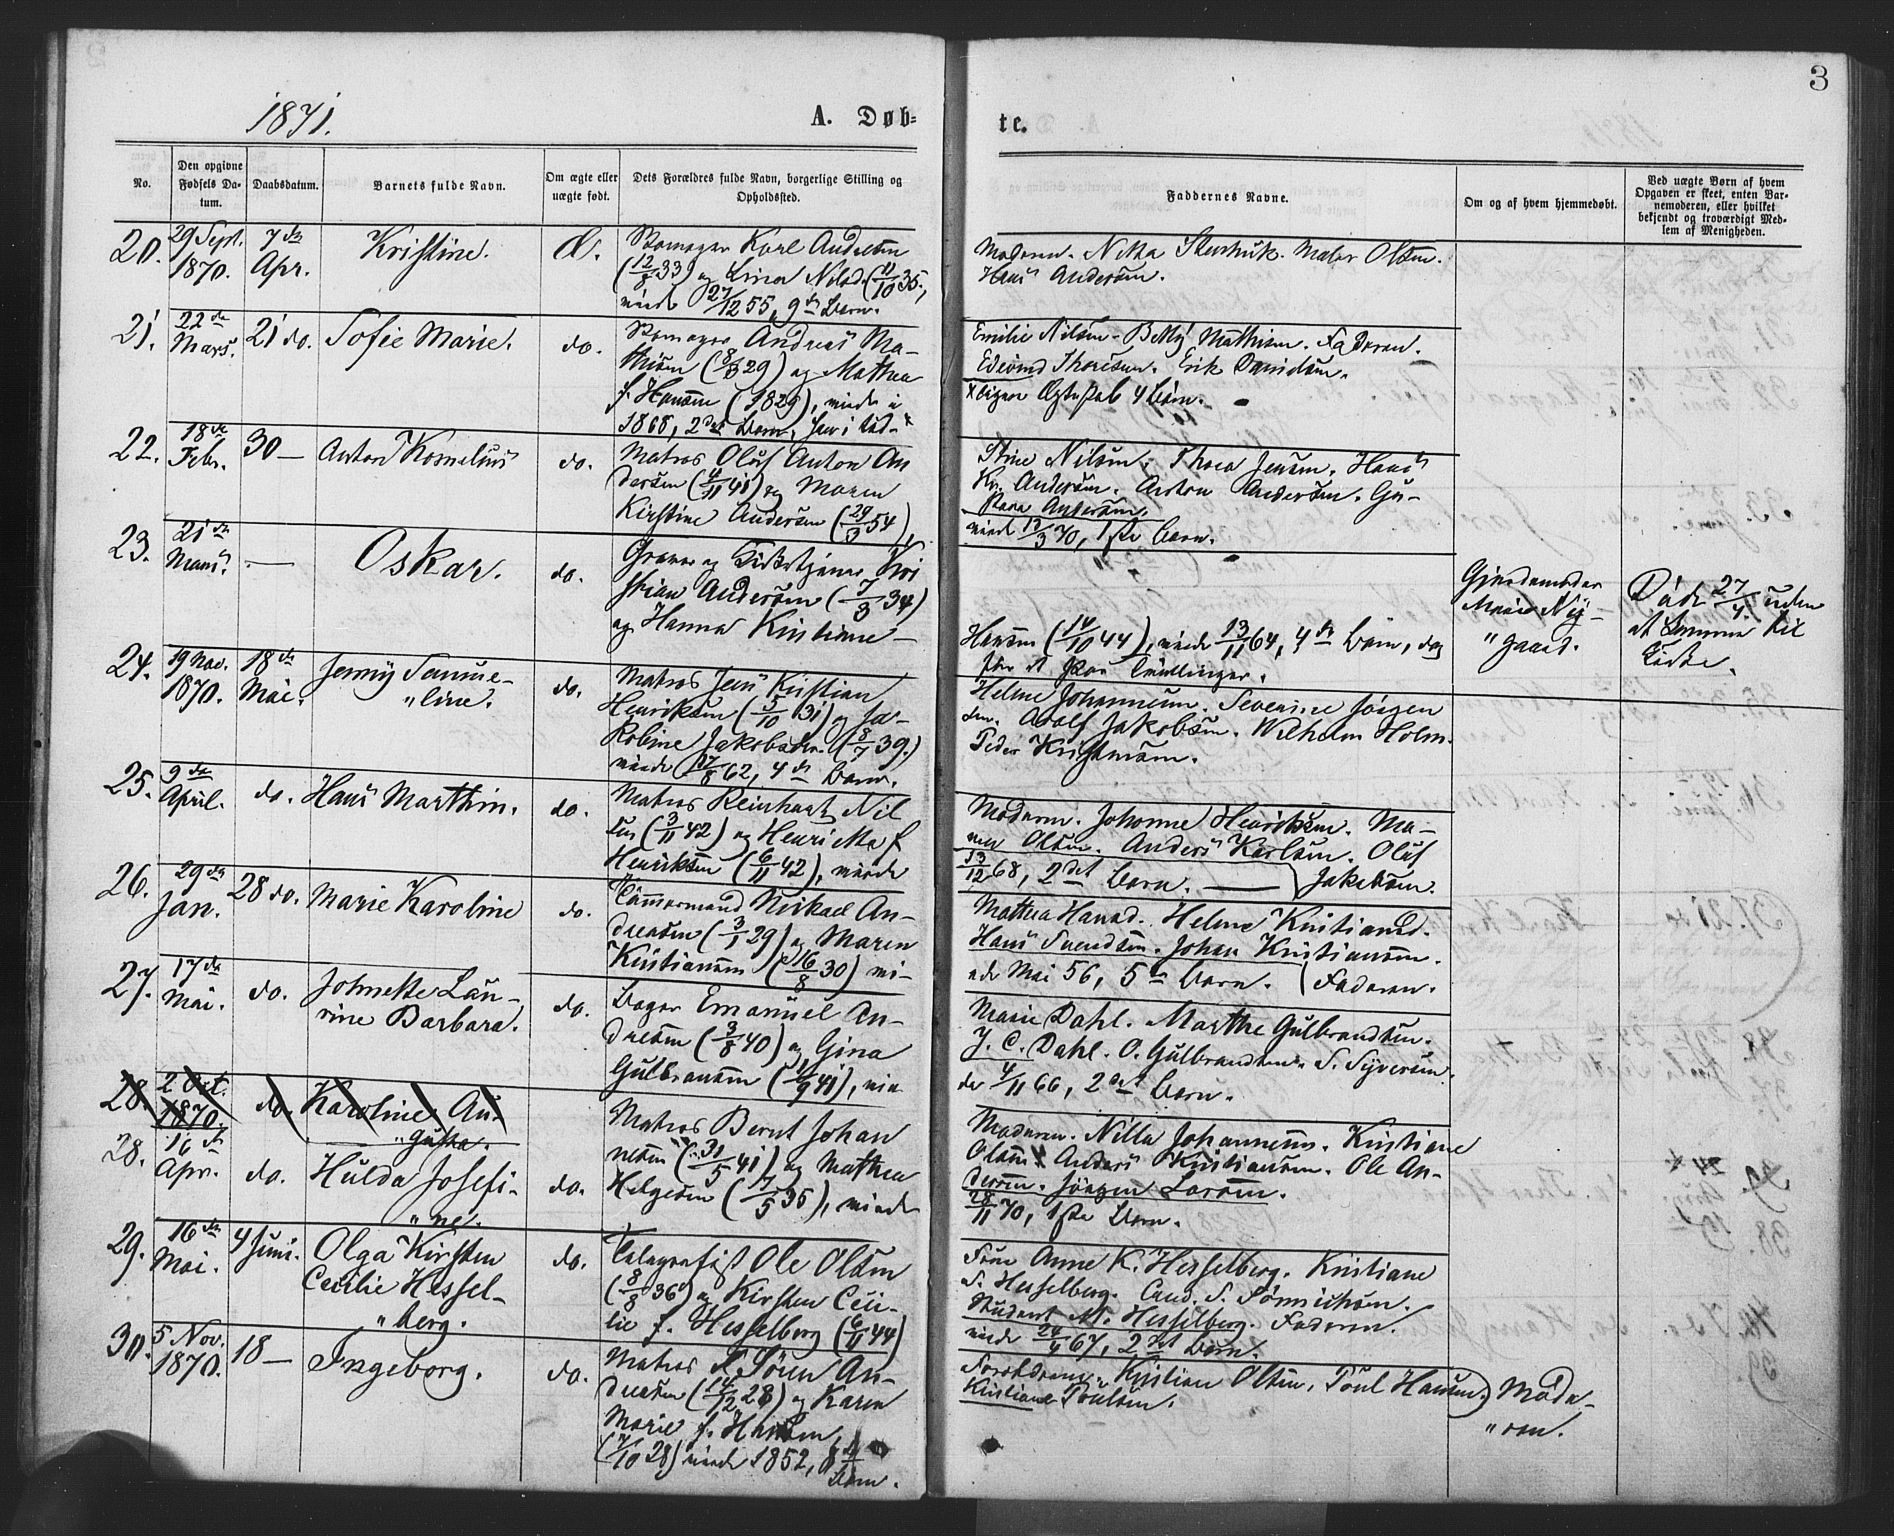 1871.
A. Døb=
te.
3
No.
Den opgivne Fødsels Da- tum.
Daabsdatum.
Barnets fulde Navn.
Om ægte eller uægte født.
Dets Forældres fulde Navn, borgerlige Stilling og Opholdssted.
Faddernes Navne.
Om og af hvem hjemmedøbt.
Ved uægte Børn af hvem Opgaven er skeet, enten Bar- nemoderen, eller hvilket bekjendt og troværdigt Med- lem af Menigheden.
20.
29 Sept. 1870.
7de Apr.
Kristine.
Karl Andersen
(12/8 33) og Nilsd. (11/10 35,
27/12 55, 9de Barn.
Moderen. Olsen.
Hans Andersen.
21.
22de Mars.
21 do.
Sofie Marie.
do.
Andreas Ma-
thisen (8/3 29) og Mathea
f. Hansen (1829), viede i
1868, 2det Barn,
Emilie Nilsen. Betsy Mathisen. Faderen.
Edevind Thoresen. Erik Davidsen.
4 Børn.
22.
18de Febr.
30 —
Anton Kornelius
do.
Matros Oluf Anton An
dersen (4/11 41) og Maren
Kirstine Andersen (29/3 54),
Stine Nilsen. Thea Jensen. Hans
Kr. Andersen. Anton Andersen. Gu-
stava Andersen.
viede 12/3 70, 1ste Barn.
23.
21de Mars.
—
Oskar.
do.
Graver og Kirketjener Kri
stian Andersen (7/3 34)
og Hanna Kristiane —
Hansen (14/10 44), viede 13/11 64, 4de Barn, dog
før et Par Tvillinger.
Gjordemoder
Marie Ny-
„ gaard.
Døde 27/4. uden
at komme til
Kirke.
24.
19 Nov. 1870.
18de Mai.
Jenny Samue-
„line.
do.
Matros Jens Kristian
Henriksen (5/10 31) og Ja-
kobine Jakobsen. (8/7 39.)
viede 17/8 62, 4de Barn.
Helene Johannesen. Severine Jørgen
sen. Adolf Jakobsen. Wilhelm Holm.
Peder Kristensen.
25.
9de April.
do.
Hans Marthin.
do.
Matros Reinhart Nil
sen (3/11 42) og Henriette f.
Henriksen (6/11 42), viede
Moderen. Johanne Henriksen. Ma-
ren Olsen. Anders Karlsen. Oluf
13/12 68, 2det Barn. — Jakobsen.
26.
29de Jan.
28 do.
Marie Karoline
do.
Tømmermand Mikael An-
dreasen (3/1 29) og Maren
Kristiansen (16/8 30) vi-
Mathea Hansd. Helene Kristiansd.
Hans Svendsen. Johan Kristiansen.
ede Mai 56, 5te Barn. Faderen.
27.
17de Mai.
do.
Johnette Lau-
rine Barbara.
do.
Bager Emanuel An-
dresen (3/8 40) og Gina
Gulbransen (1/9 41), vie
Marie Dahl. Marthe Gulbrandsen.
J. C. Dahl. O. Gulbrandsen. S. Syversen.
de 4/11 66, 2det Barn.
28.
2 Oct. 1870.
do.
Karoline Au-
„gusta.
28.
16de Apr.
do.
Hulda Josefi-
„ne.
do.
Matros Bernt Johan
nesen (31/5 41) og Mathea
Helgesen (7/5 35), viede
Moderen. Nilla Johannesen. Kristiane
Olsen. Anders Kristiansen. Ole An-
dersen. Jørgen Larsen.
28/11 70, 1ste Barn.
29.
16de Mai.
4 Juni.
Olga Kirsten
Cecilie Hessel-
„berg.
do.
Telegrafist Ole Olsen
(8/8 36) og Kirsten Ceci-
lie f. Hesselberg (6/11 44)
Frue Anne K. Hesselberg. Kristiane
S. Hesselberg. Cand. S. Sønnichsen.
Student M. Hesselberg. Faderen.
viede 24/4 67, 2det Barn.
30.
5 Nov. 1870.
18 —
Ingeborg.
do.
Matros Søren An-
dreasen (14/12 28) og Karen
Marie f. Hansen
(7/10 28) viede 1852, 8de
Barn.
Forældrene. Kristian Olsen. Poul Hansen
Kristiane Poulsen.
Mode-
„ren.